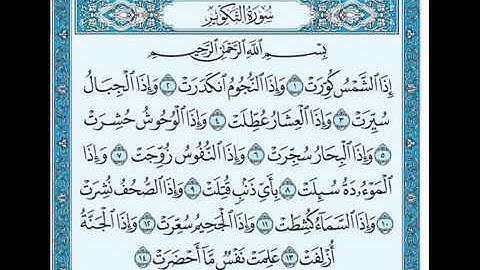 سُورَةُ التَّكْوِيرِ
بِسْمِ اللَّهِ الرَّحْمَٰنِ الرَّحِيمِ
إِذَا الشَّمْسُ كُوِّرَتْ ١ وَإِذَا النُّجُومُ انكَدَرَتْ ٢ وَإِذَا الْجِبَالُ
سُيِّرَتْ ٣ وَإِذَا الْعِشَارُ عُطِّلَتْ ٤ وَإِذَا الْوُحُوشُ حُشِرَتْ
٥ وَإِذَا الْبِحَارُ سُجِّرَتْ ٦ وَإِذَا النُّفُوسُ زُوِّجَتْ ٧ وَإِذَا
الْمَوْءُودَةُ سُئِلَتْ ٨ بِأَيِّ ذَنبٍ قُتِلَتْ ٩ وَإِذَا الصُّحُفُ نُشِرَتْ
١٠ وَإِذَا السَّمَاءُ كُشِطَتْ ١١ وَإِذَا الْجَحِيمُ سُعِّرَتْ ١٢ وَإِذَا الْجَنَّةُ
أُزْلِفَتْ ١٣ عَلِمَتْ نَفْسٌ مَّا أَحْضَرَتْ ١٤